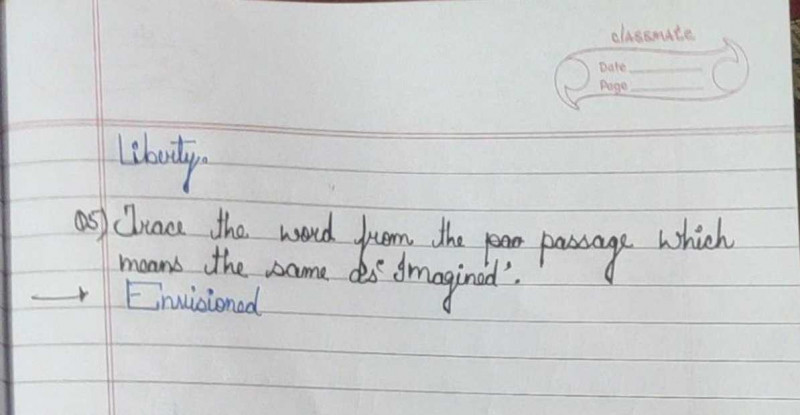 classmate
Date
Page
Liberty.
Q5) Trace the word from the passage which
means the same as 'Imagined'.
→ Envisioned